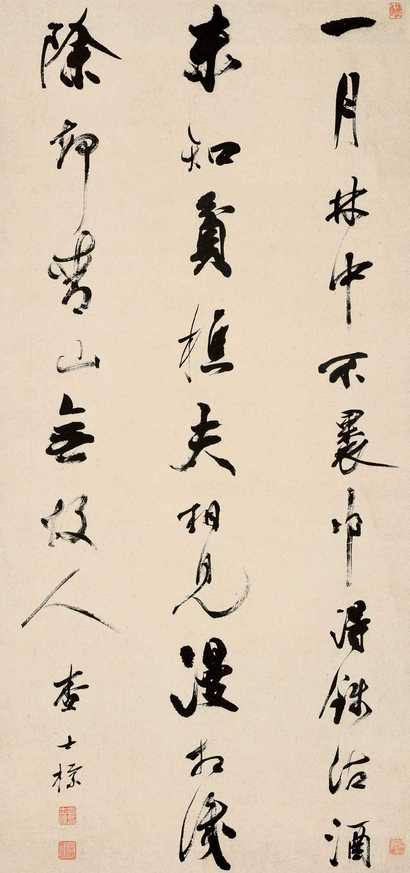 一月林中不裹巾得錢沽酒
未知貧樵夫相見漫相識
除却青山無故人
查士標